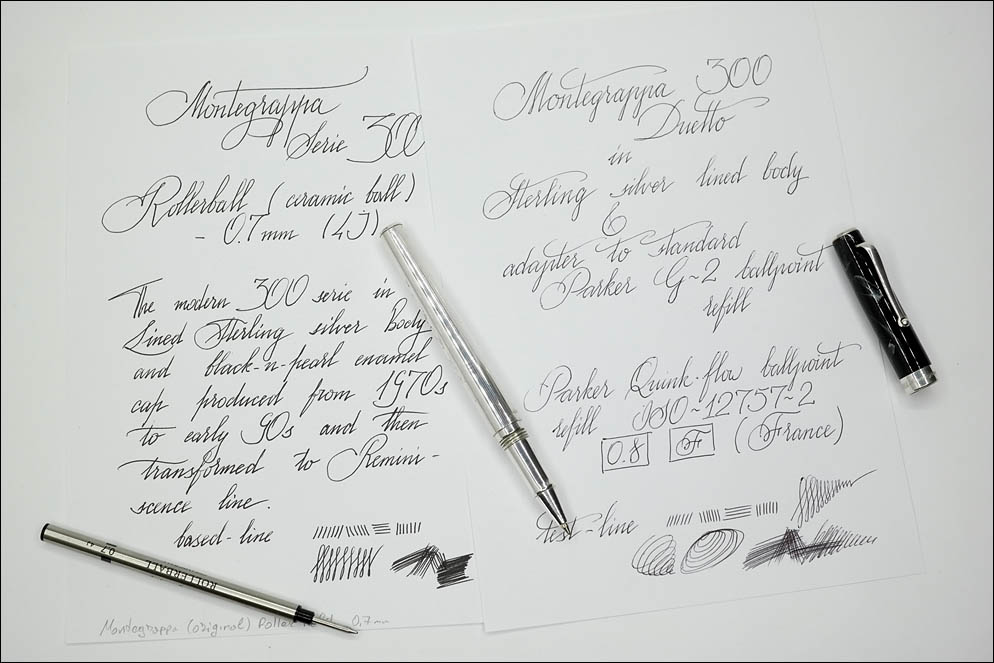 Montegrappa
Serie 300
Rollerball (ceramic ball)
- 0.7mm (4J)
The modern 300 serie in
Lined Sterling silver Body
and black-n-pearl enamel
cap produced from 1970s
to early 90s and then
transformed to Remini-
scence line.
based-line
ROLLERBALL
Montegrappa (original) Roller 0.7mm
Montegrappa 300
Duetto
in
Sterling silver lined body
&
adapter to standard
Parker G~2 ballpoint
refill
Parker Quink-flow ballpoint
refill ISO~12757~2
0.8 F (France)
test-line